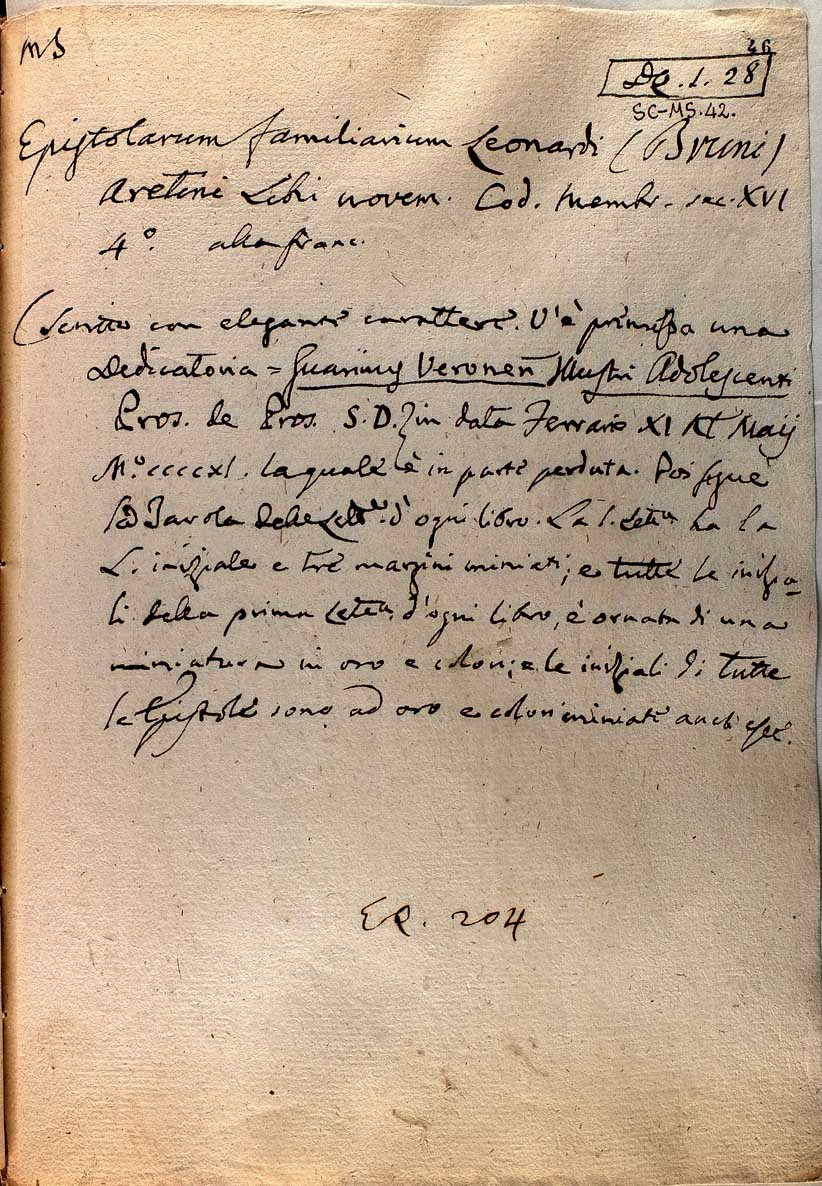 MS
46
De. 1. 28
SC-MS.42.
Epistolarum familiarium Leonardi (Bruni)
Aretini Libri novem. Cod. membr. sec. XVI
4º alla franc.
(Scritto con elegante carattere. V'è principio una
Dedicatoria = Guarinus Veronen Illustri Adolescenti
Pros. de Pros. S. D.] in data Ferrarie XI Kl Maij
M.º ccccxl. la quale è in parte perduta. Poi segue
la Tavola delle Lette. d'ogni libro. La 1. Letta ha la
L. iniziale e tre margini miniati; e tutte le inizia-
li della prima Lettea. d'ogni libro, è ornata di una
miniatura in oro e colori; e le iniziali di tutte
le Epistole sono ad oro e colori miniate anch'esse.
EC. 204